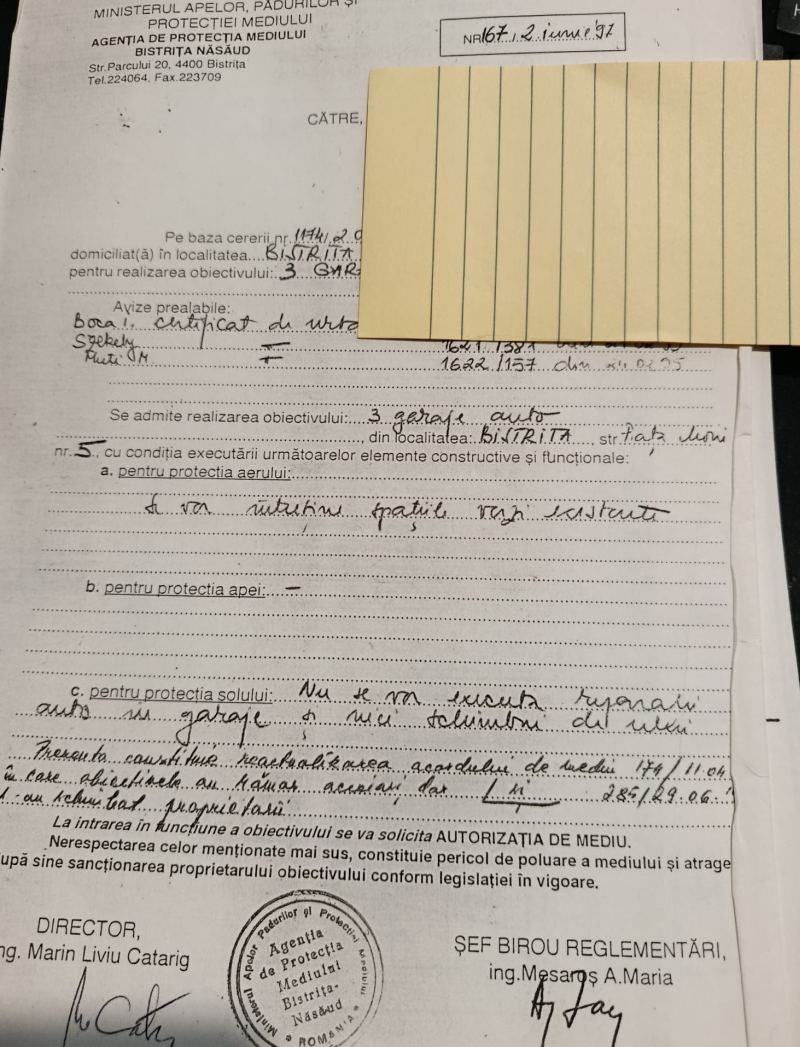 MINISTERUL APELOR, PĂDURILOR ȘI
PROTECȚIEI MEDIULUI
AGENȚIA DE PROTECTIA MEDIULUI
BISTRIȚA NĂSĂUD
Str.Parcului 20, 4400 Bistrița
Tel.224064, Fax.223709
NR 167, 2 iunie '97
CĂTRE,
Pe baza cererii nr. 1174/
domiciliat(ă) în localitatea....BISTRIȚA
pentru realizarea obiectivului:. 3 GAR
Avize prealabile:
Boca I. certificat de
Szekely 1621/381
1622/157 din
Se admite realizarea obiectivului: 3 garaje auto
, din localitatea: BISTRITA, str.
nr. 5, cu condiția executării următoarelor elemente constructive și funcționale:
a. pentru protectia aerului:
Se vor întreține spațiile verzi existente
b. pentru protectia apei: —
c. pentru protectia solului: Nu se vor executa reparații
auto în garaje și nici schimburi de ulei
Prezenta constituie reactualizarea acordului de mediu 174/11.04
în care obiectivele au rămas aceleași, dar și 285/29.06.
s-au schimbat proprietarii
La intrarea în funcțiune a obiectivului se va solicita AUTORIZAȚIA DE MEDIU.
Nerespectarea celor menționate mai sus, constituie pericol de poluare a mediului și atrage
upă sine sancționarea proprietarului obiectivului conform legislației în vigoare.
DIRECTOR,
ng. Marin Liviu Catarig
Ministerul Apelor Pădurilor și Protecției Mediului
Agenția
de Protecția
Mediului
Bistrița-
Năsăud
* ROMANIA *
ȘEF BIROU REGLEMENTĂRI,
ing.Mesaroș A.Maria